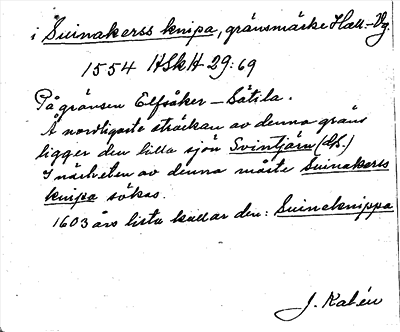 i Suinakerss knipa, gränsmärke Hall.-Vg.
1554 HSkH 29:69
På gränsen Elfsåker – Sätila.
Å nordligaste sträckan av denna gräns
ligger den lilla sjön Svintjärn (dB.)
I närheten av denna måste Suinakerss
knipa sökas.
1603 års lista kallar den: Suineknippa
J. Kalén